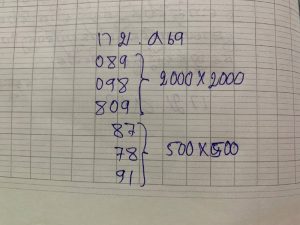 089
098 } 2000 X 2000
809
87
78 } 500 X 500
91